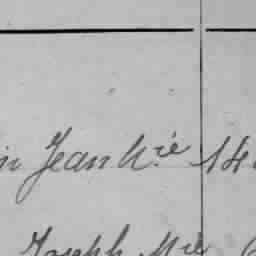 in Jean h.ie 14
Joseph Mie